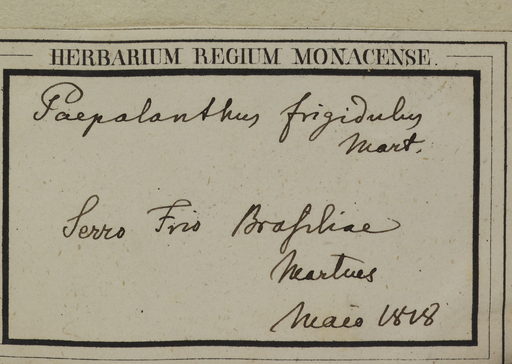 HERBARIUM REGIUM MONACENSE.
Paepalanthus frigidulus
Mart.
Serro Frio Brasiliae
Martius
Maio 1818